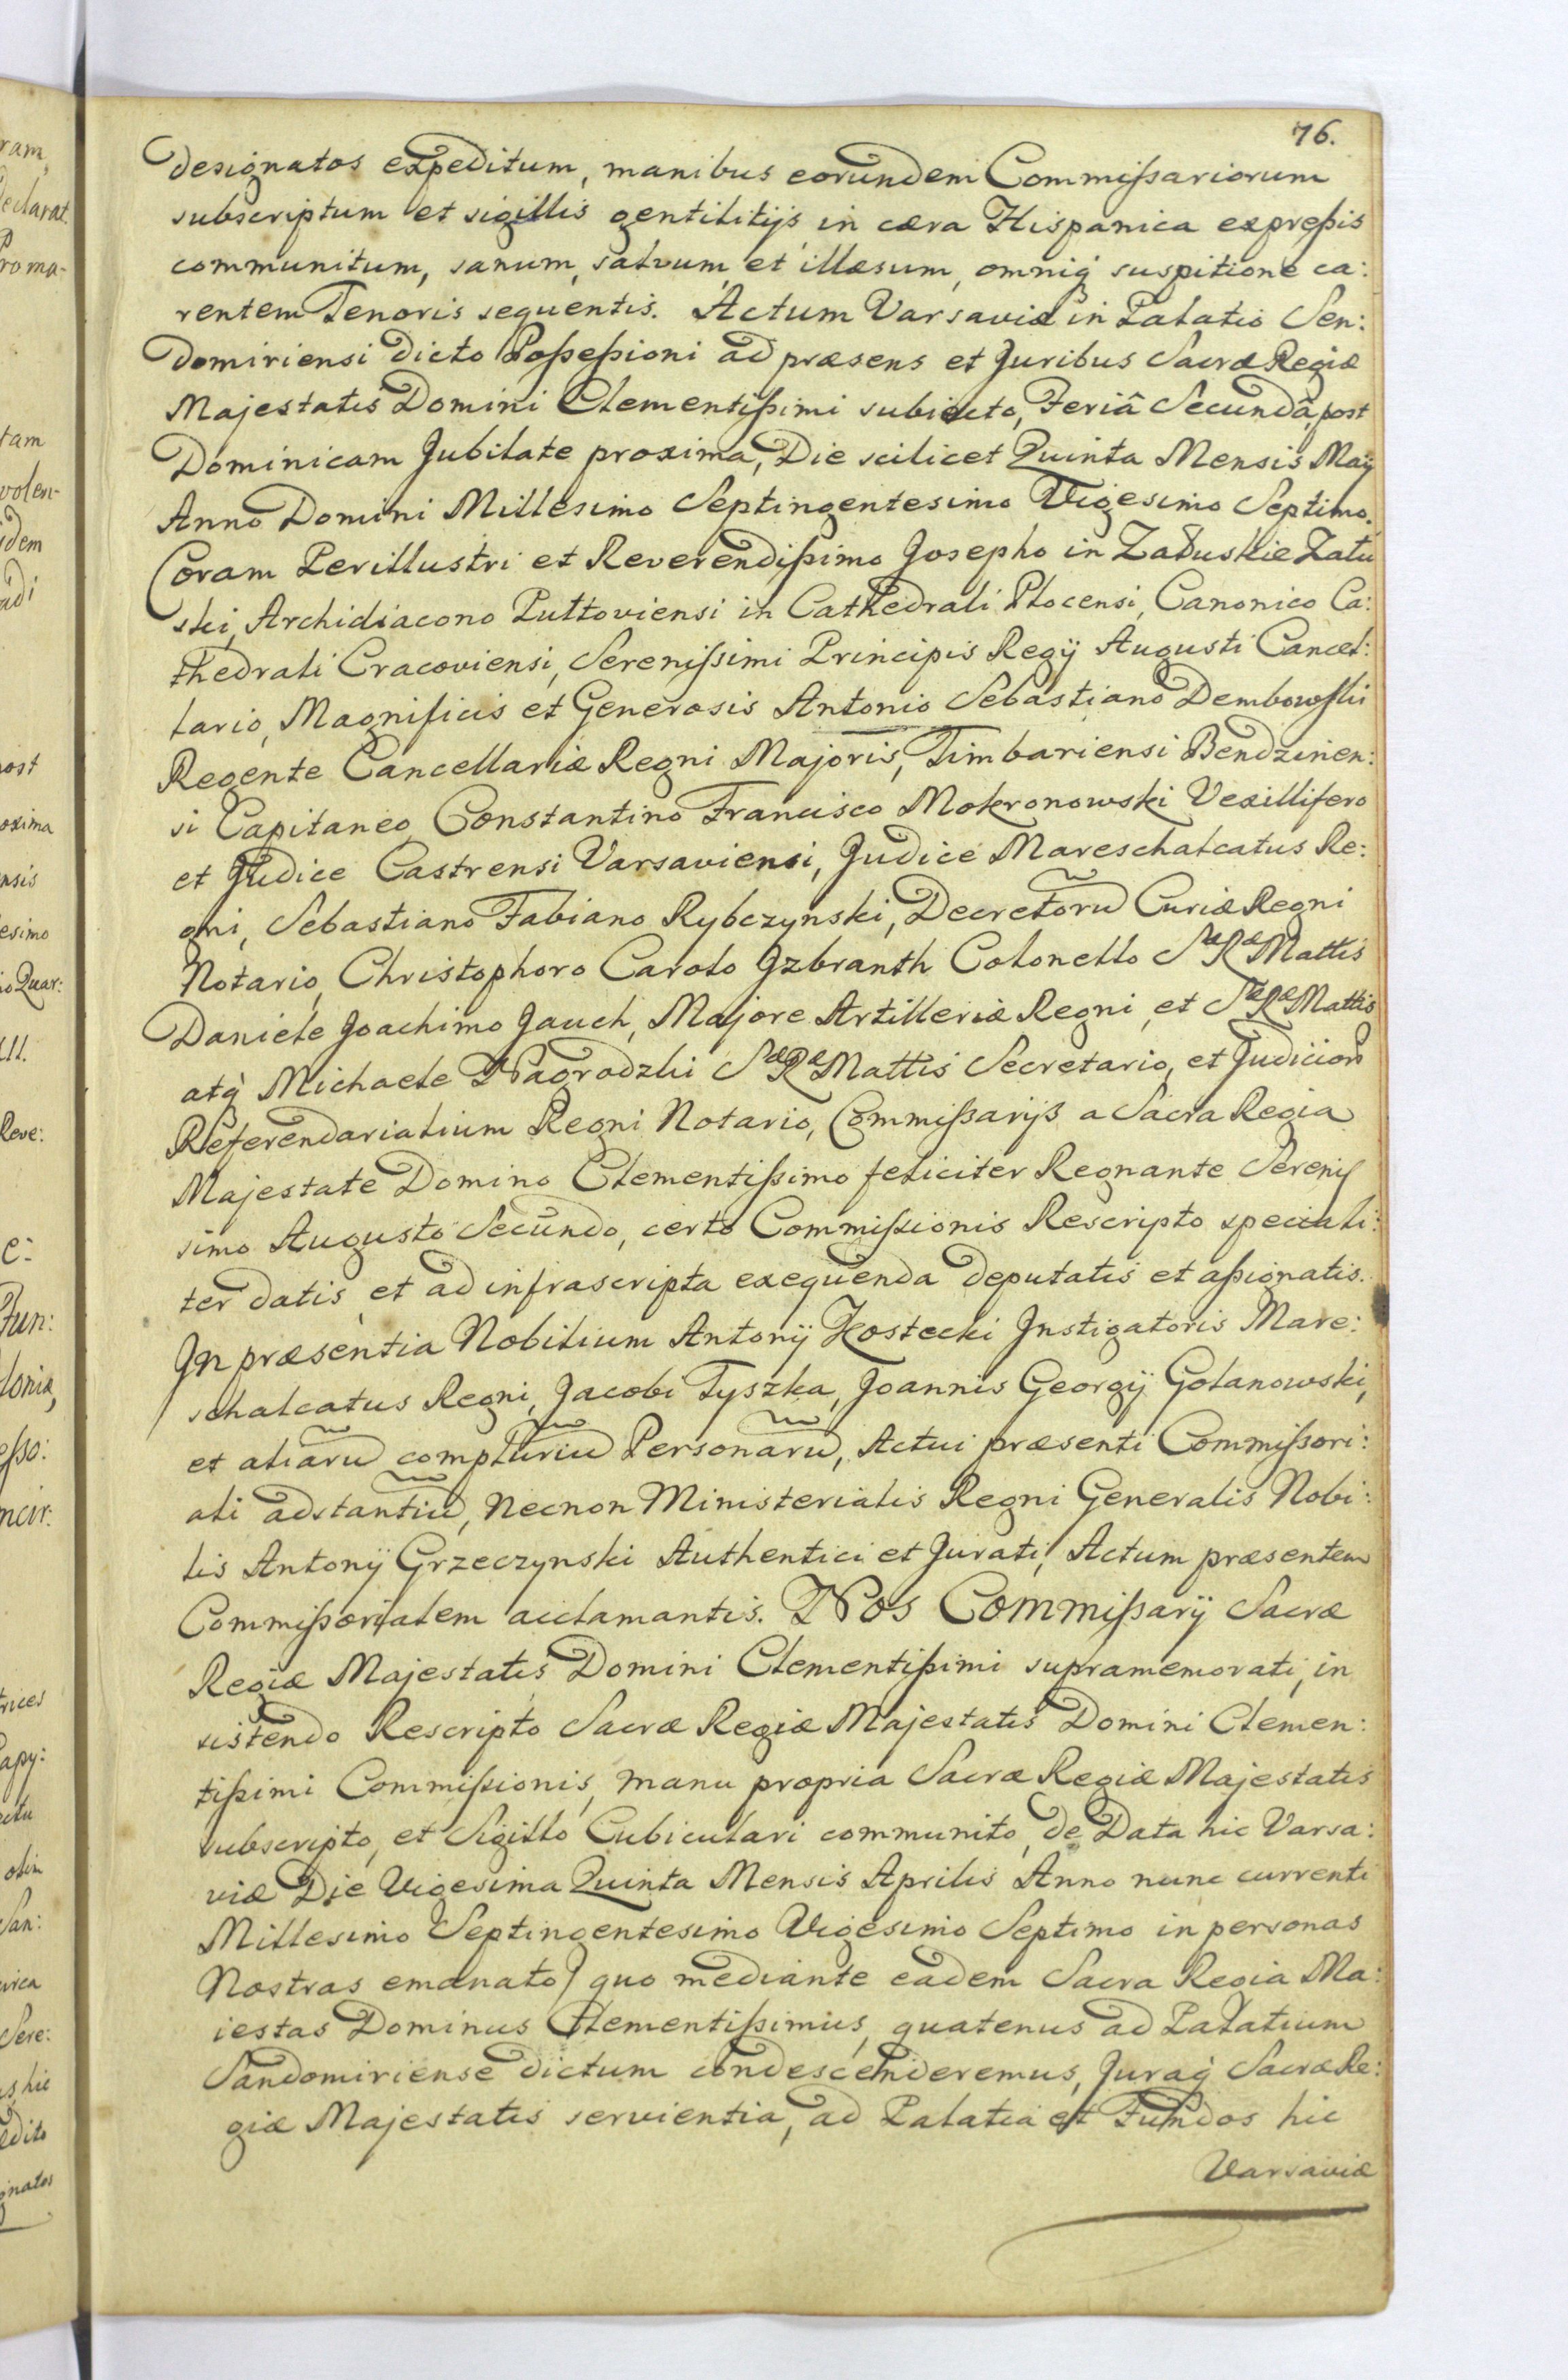 76.
designatos expeditum, manibus eorundem Commißariorum
subscriptum et sigillis gentilitijs in cæra Hispanica expreßis
communitum, sanum, salvum, et illæsum, omniq́ suspitione ca:
rentem Tenoris sequentis. Actum Varsaviæ in Palatio Sen:
domiriensi dicto Poßeßioni ad præsens et Juribus Sacræ Regiæ
Majestatis Domini Clementißimi subiecto, Feriâ Secundâ, post
Dominicam Jubilate proxima, Die scilicet Quinta Mensis Maÿ
Anno Domini Millesimo Septingentesimo Vigesimo Septimo.
Coram Perillustri et Reverendißimo Josepho in Załuskie Zału
ski, Archidiacono Pułtoviensi in Cathedrali Plocensi, Canonico Ca:
thedrali Cracoviensi, Serenißimi Principis Regÿ Augusti Cancel:
lario, Magnificis et Generosis Antonio Sebastiano Dembowski
Regente Cancellariæ Regni Majoris, Timbariensi Bendzinen:
si Capitaneo, Constantino Francisco Mokronowski Vexillifero
et Judice Castrensi Varsaviensi, Judice Mareschalcatus Re:
gni, Sebastiano Fabiano Rybczynski, Decretoru͂ Curiæ Regni
Notario, Christophoro Carolo Jzbranth Colonello Sæ Ræ Mattis
Daniele Joachimo Jauch, Majore Artilleriæ Regni, et Sæ Ræ Mattis
atq́ Michaele Nagrodzki Sæ Ræ Mattis Secretario, et Judicior͂
Referendarialium Regni Notario, Commißarijs a Sacra Regia
Majestate Domino Clementißimo feliciter Regnante Serenis
simo Augusto Secundo, certo Commißionis Rescripto speciali:
ter datis, et ad infrascripta exequenda deputatis et aßignatis.
Jn præsentia Nobilium Antonÿ Kostecki Jnstigatoris Mare:
schalcatus Regni, Jacobi Tyszka, Joannis Georgÿ Golanowski,
et aliaru͂ compluriu͂ Personaru͂, Actui præsenti Commißori:
ali adstantiu͂, Necnon Ministerialis Regni Generalis Nobi:
lis Antonÿ Grzeczynski Authentici et Jurati, Actum præsentem
Commißorialem acclamantis. Nos Commißarÿ Sacræ
Regiæ Majestatis Domini Clementißimi supramemorati, in
sistendo Rescripto Sacræ Regiæ Majestatis Domini Clemen:
tißimi Commißionis, manu propria Sacræ Regiæ Majestatis
subscripto, et Sigillo Cubiculari communito, de Data hic Varsa:
viæ Die Vigesima Quinta Mensis Aprilis Anno nunc currenti
Millesimo Septingentesimo Vigesimo Septimo in personas
Nostras emanato) quo mediante eadem Sacra Regia Ma:
iestas Dominus Clementißimus, quatenus ad Palatium
Sandomiriense dictum condescenderemus, Juraq́ Sacræ Re:
giæ Majestatis servientia, ad Palatia et Fundos hic
Varsaviæ